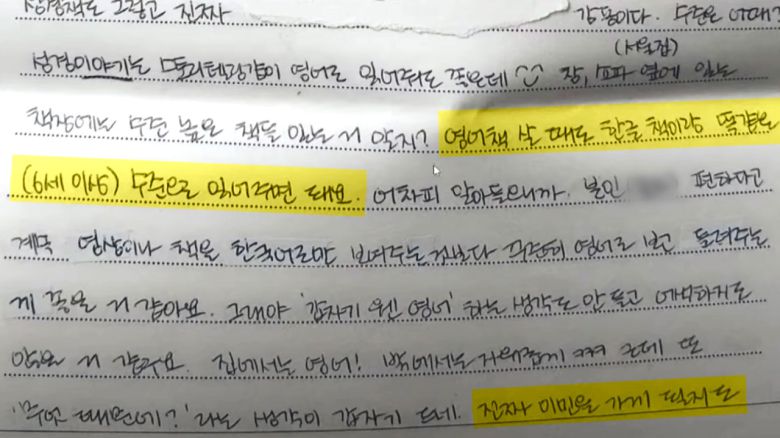 성경책도 그렇고 진짜 강풍이다. 수준은 어때?
(서울집)
성경이야기는 스토리텔링같이 영어로 읽어줘도 좋은데 장, 소파 옆에 있는
책장에는 수준 높은 책들 있는 거 알지? 영어책 살 때도 한글 책이랑 똑같은
(6세 이상) 수준으로 읽어주면 돼요. 어차피 알아들으니까. 본인 편하다고
계속 영상이나 책을 한국어로만 보여주는 것보다 꾸준히 영어로 보고 들려주는
게 좋을 거 같아요. 그래야 '갑자기 웬 영어' 하는 생각도 안 들고 어색하지도
않을 거 같구요. 집에서는 영어! 밖에서는 자연스럽게 근데 또
'무엇 때문에?' 라는 생각이 갑자기 드네. 진짜 이민을 가게 될지도